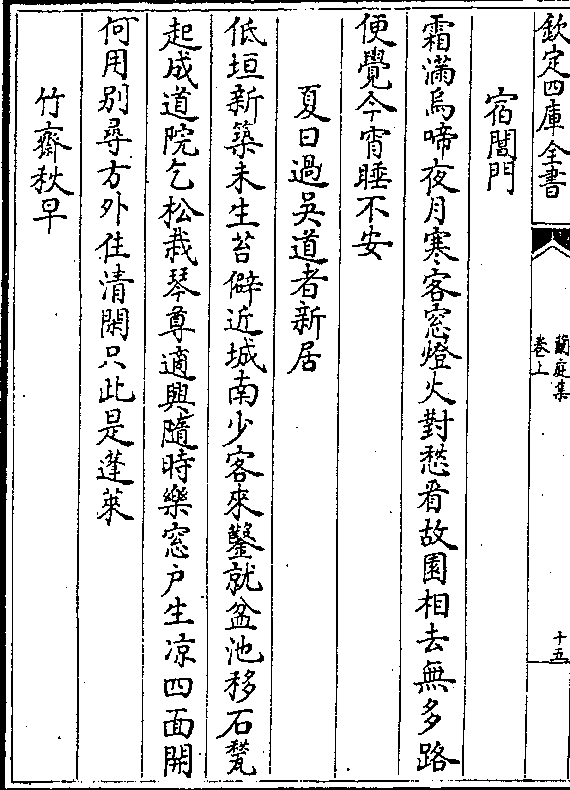 欽定四庫全書
蘭庭集
卷上
十五
宿閶門
霜滿烏啼夜月寒客窓燈火對愁看故園相去無多路
便覺今宵睡不安
夏日過吳道者新居
低垣新築未生苔僻近城南少客來鑿就盆池移石甃
起成道院乞松栽琴尊適興隨時樂窓户生凉四面開
何用别尋方外住清閑只此是蓬萊
竹齋秋早